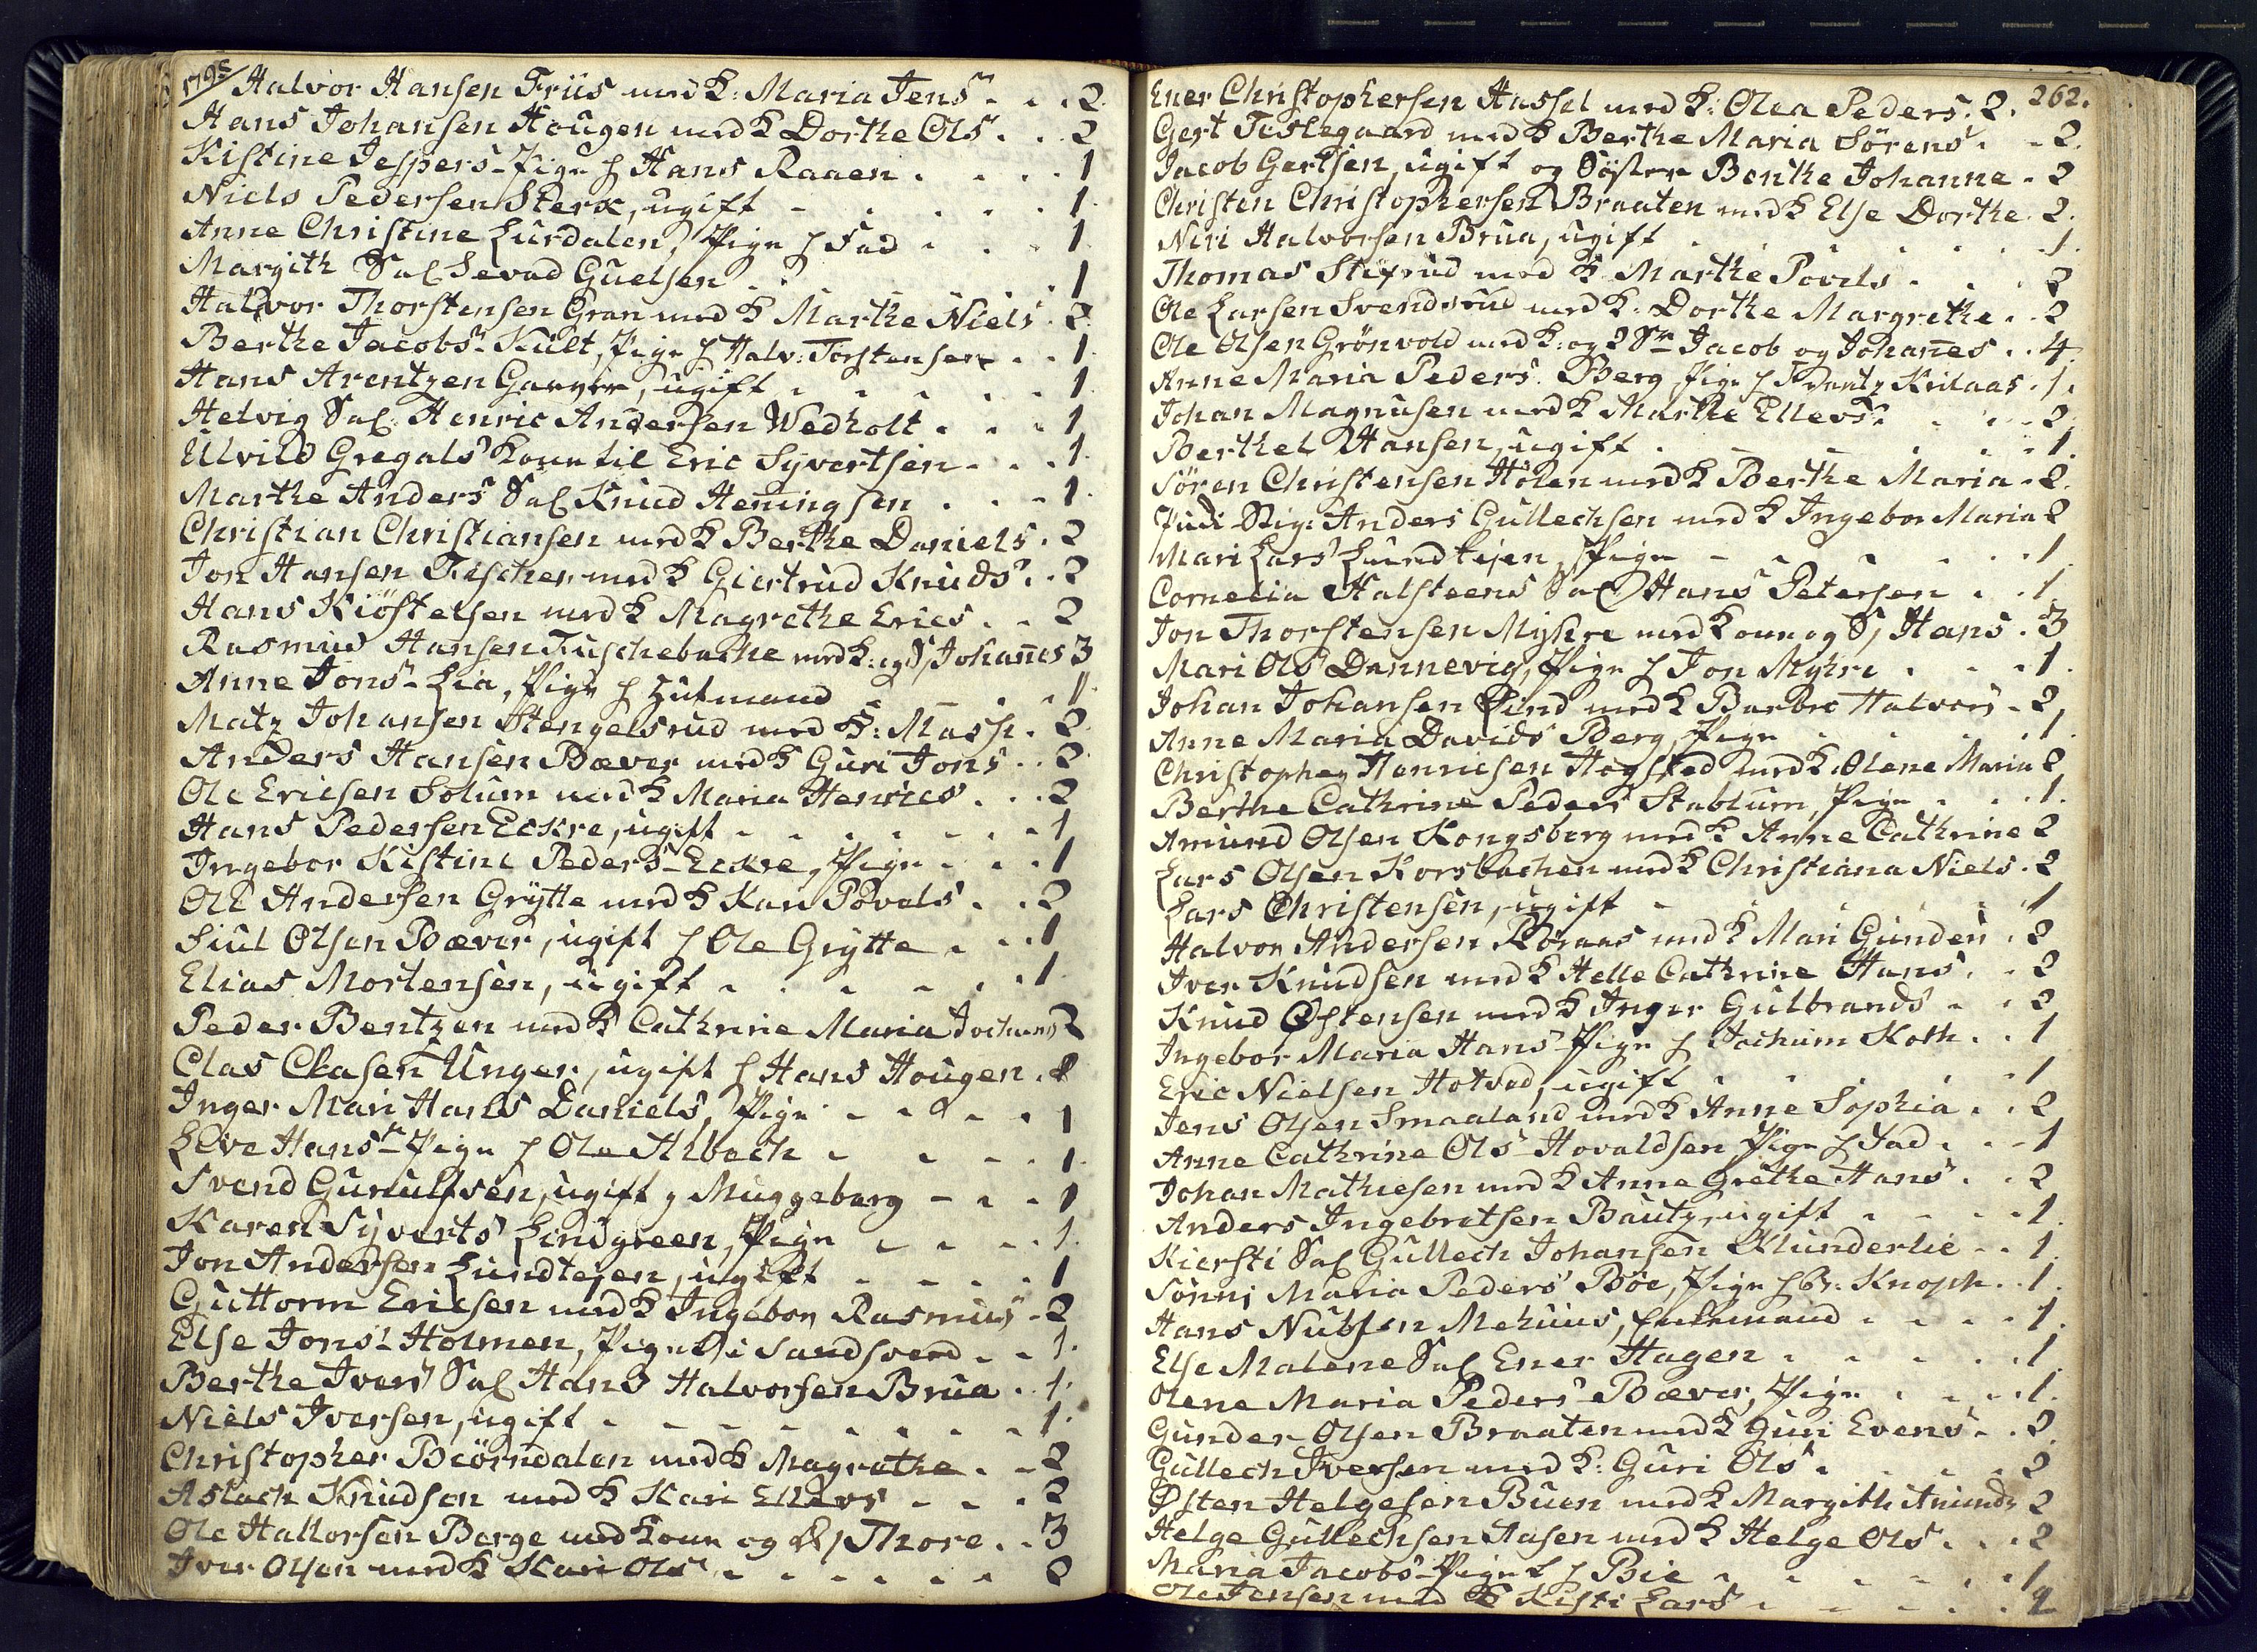 1795/ Halvor Hansen Friis med K: Maria Jens - . . 2.
Hans Johansen Hougen med K Dorthe Ols . . . 2
Kistine Jespers - Pige H Hans Raaen . . . . 1
Niels Pedersen Sterk, ugift - . . . . 1.
Anne Christine Lurdalen, Pige H Fad . . . 1
Margith Sal Sevad Guelsen . . . 1
Halvor Thorstensen Gran med K Marthe Niels . 2.
Berthe Jacobs - Kult, Pige H Halv: Torstensen . . 1
Hans Arentzen Garver, ugift . . . . . 1
Helvig Sal. Henric Andersen Wedholt . . . 1
Ulvild Gregals Kone til Eric Syvertsen - . . 1.
Marthe Anders Sal Knud Henningsen . . . 1
Christian Christiansen med K Berthe Daniels . 2
Jon Hansen Fischer med K Giertrud Knuds . . 2
Hans Kiöstelsen med K Magrethe Erics . . 2
Rasmus Hansen Tuschebache med K: og S/ Johannes 3
Anne Jons - Lia, Pige H . . 1.
Matz Johansen Stengelsrud med K: Mass . 2
Anders Hansen Bæver med K Guri Jons . . 2
Ole Ericsen Solum med K Maria Henrics . . . 2
Hans Pedersen Eckre, ugift . . . . . . 1
Ingebor Kistine Peders - Eckre, Pige . . . 1
Ole Andersen Grytte med K Kari Povels . . . 2
Siul Olsen Bæver, ugift H Ole Grytte . . . 1
Elias Mortensen, ugift . . . . . . 1
Peder Bentzen med K Cathrine Maria Jochums 2
Clas Clasen Unger, ugift H Hans Hougen . 1
Inger Mari Hans Daniels, Pige - . . . . 1
Live Hans - Pige H Ole Albech . . . . 1.
Svend Gunulfsen, ugift g Muggeberg - . . 1
Karen Syverts Lindgreen, Pige . . . . 1.
Jon Andersen Lundtejen, ugift . . . . 1
Guttorm Ericsen med K Ingebor Rasmus - 2
Else Jons - Holmen, Pige Sandsverd . . 1.
Berthe Ivers Sal Hans Halvorsen Brua . . 1.
Niels Iversen, ugift . . . . . . . . 1.
Christopher Biörndalen med K Magrethe . . 2
Aslach Knudsen med K Kari Ellevs . . . 2
Ole Hallorsen Berge med Kone og S/ Thore . . 3
Iver Olsen med K Kari Ols . . . . . . 2
262.
Ener Christophersen Hassel med K: Olea Peders. 2.
Gert Teslegaard med K Berthe Maria Sörens . . 2.
Jacob Gertsen, ugift og Söster Benthe Johanne - 2
Christen Christophersen Braaten med K Else Dorthe. 2.
Niri Halvorsen Brua, ugift . . . . . . . 1.
Thomas Stixrud med K Marthe Povels . . . 2
Ole Larsen Svendsrud med K: Dorthe Margrethe . . 2
Ole Olsen Grönvold med K: og 2 Sn Jacob og Johannes . . 4.
Anne Maria Peders. Berg, Pige H Krilaas . 1.
Johan Magnusen med K Marthe Ellevs . . . 2.
Berthel Hansen, ugift . . . . . . . 1.
Sören Christensen Holen med K Berthe Maria - 2.
Anders Gullechsen med K Ingebor Maria 2
Mari Lars Lundtejen, Pige - . . . . . 1
Cornelia Halsteens Sal Hans Petersen . . 1.
Jon Thorstensen Myhre med Kone og S, Hans . 3
Mari Ols Dannevig, Pige H Jon Myhre . . . 1.
Johan Johansen Lind med K Barbro Halvors . 2,
Anne Maria Davids Berg, Pige . . . . . 1.
Christopher Henricsen Hogsted med K. Olene Maria 2
Berthe Cathrine Peders Stablum, Pige . . . 1.
Amund Olsen Kongsberg med K Anne Cathrine 2
Lars Olsen Korsbachen med K Christiana Niels . 2
Lars Christensen, ugift - . . . . . . 1
Halvor Andersen Röraas med K Mari Gunders . 2
Iver Knudsen med K Helle Cathrine Hans . . 2
Knud Östensen med K Inger Gulbrands . . 2
Ingebor Maria Hans - Pige H Jochum Koth . . 1
Eric Nielsen Hotved, ugift . . . . . 1
Jens Olsen Smaaland med K Anne Sophia . . 2
Anne Cathrine Ols - Hovaldsen, Pige H Fad . . . 1
Johan Mathiesen med K Anne Grethe Hans . . 2
Anders Ingebretsen Bautz, ugift . . . . 1.
Kiersti Sal Gullech Johansen Klunderlie . . 1
Sönni Maria Peders Böe, Pige H Br: Knoph . . 1.
Hans Nubsen Mehuus, Enkemand . . . . 1.
Else Malene Sal Ener Hagen . . . . . . 1.
Olene Maria Peders - Bæver, Pige . . . . 1.
Gunder Olsen Braaten med K Guri Evens . . 2
Gullech Iversen med K: Guri Ols . . . . 2
Östen Helgesen Buen med K Margith Amunds 2
Helge Gullechsen Aasen med K Helge Ols . . . 2
Maria Jacobs - Pige H Bie . . . . . . 1
Ole Jensen med K Kisti Lars . . . . . 2